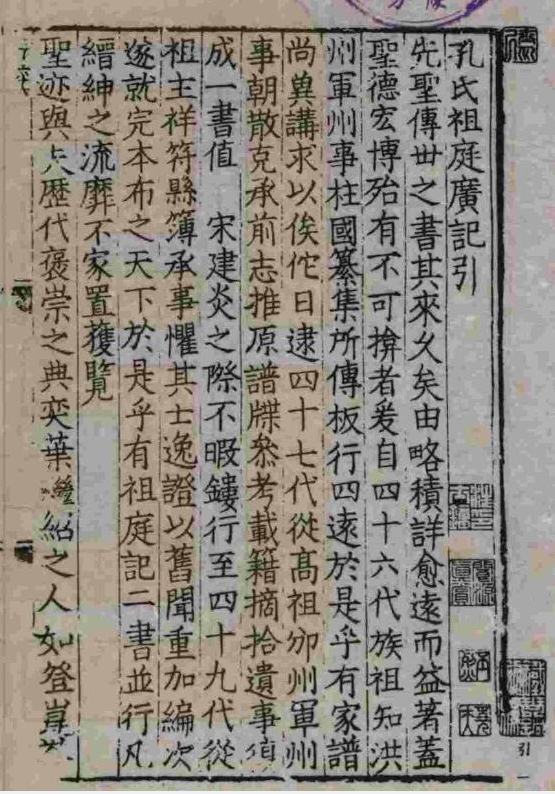 孔氏祖庭廣記引
先聖傳世之書其來久矣由略積詳愈遠而益著蓋
聖德宏博殆有不可揜者爰自四十六代族祖知洪
州軍州事柱國纂集所傳板行四遠於是乎有家譜
尚兾講求以俟佗日逮四十七代從髙祖邠州軍州
事朝散克承前志推原譜牒叅考載籍摘拾遺事
成一書值 宋建炎之際不暇鏤行至四十九代從
祖主祥符縣簿承事懼其亡逸證以舊聞重加編次
遂就完本布之天下於是乎有祖庭記二書並行凡
縉紳之流靡不家置獲覽
聖迹與夫歷代褒崇之典奕葉繼紹之人如登崑
引
一